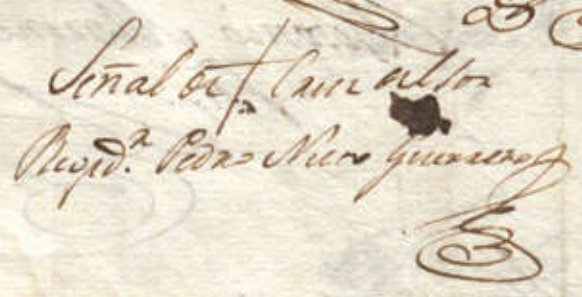 Señal de † Cruz del Sor
Regid.r Pedro Nieto Guerrero